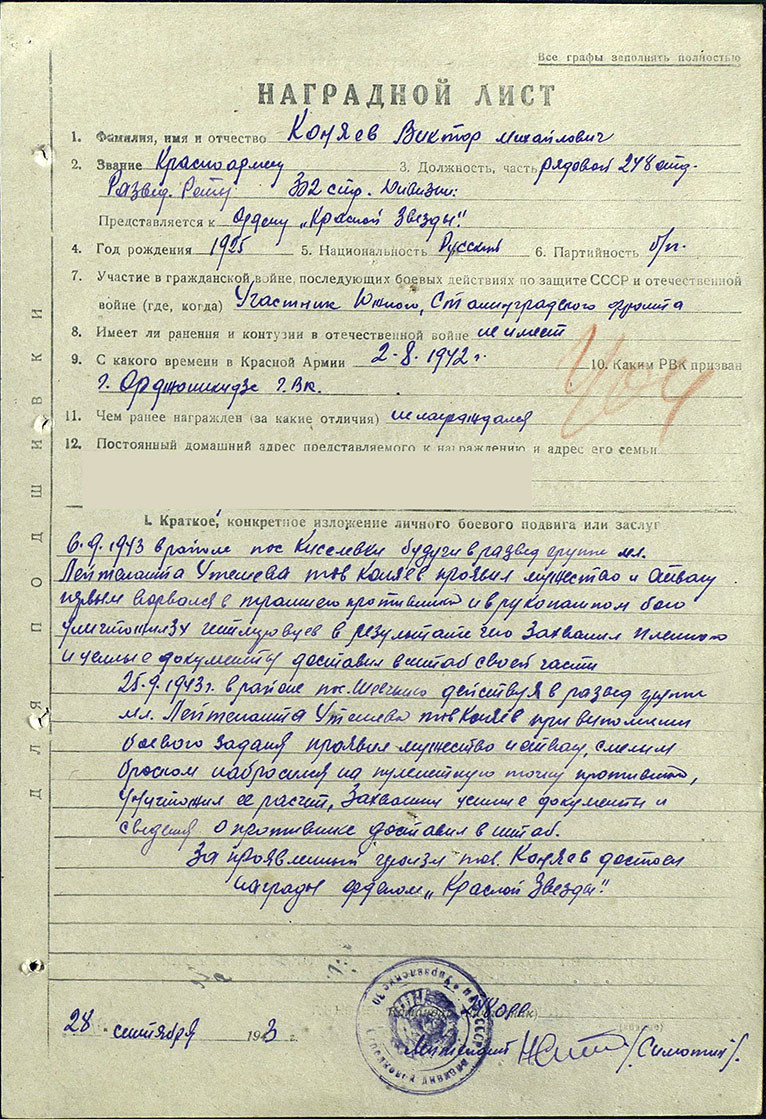 Все графы заполнять полностью
НАГРАДНОЙ ЛИСТ
1. Фамилия, имя и отчество Коняев Виктор Михайлович
2. Звание Красноармеец 3. Должность, часть рядовой 248 отд.
Развед. Роты 302 стр. Дивизии.
Представляется к Ордену „Красной Звезды".
4. Год рождения 1925 5. Национальность Русский 6. Партийность б/п.
7. Участие в гражданской войне, последующих боевых действиях по защите СССР и отечественной
войне (где, когда) Участник Южного, Сталинградского фронта
8. Имеет ли ранения и контузии в отечественной войне не имеет
9. С какого времени в Красной Армии 2-8. 1942 г. 10. Каким РВК призван
г. Орджоникидзе Г.ВК.
11. Чем ранее награжден (за какие отличия) не награждался
12. Постоянный домашний адрес представляемого к награждению и адрес его семьи
I. Краткое, конкретное изложение личного боевого подвига или заслуг
6.9.1943 в районе пос Киселевки будучи в развед группе мл.
Лейтенанта Утешева тов Коняев проявил мужество и отвагу
первым ворвался в траншею противника и в рукопашном бою
уничтожил 3х гитлеровцев в результате чего Захватил пленного
и ценные документы доставил в штаб своей части
25.9.1943г. в районе пос. действуя в развед группе
мл. Лейтенанта Утешева тов Коняев при выполнении
боевого задания проявил мужество и отвагу, смелым
броском набросился на пулеметную точку противника,
уничтожил ее расчет, Захватил ценные документы и
сведения о противнике доставил в штаб.
За проявленный героизм тов. Коняев достоен
награды орденом „Красной Звезды".
28 сентября 1943 г.
/Симонин/.
ДЛЯ ПОДШИВКИ